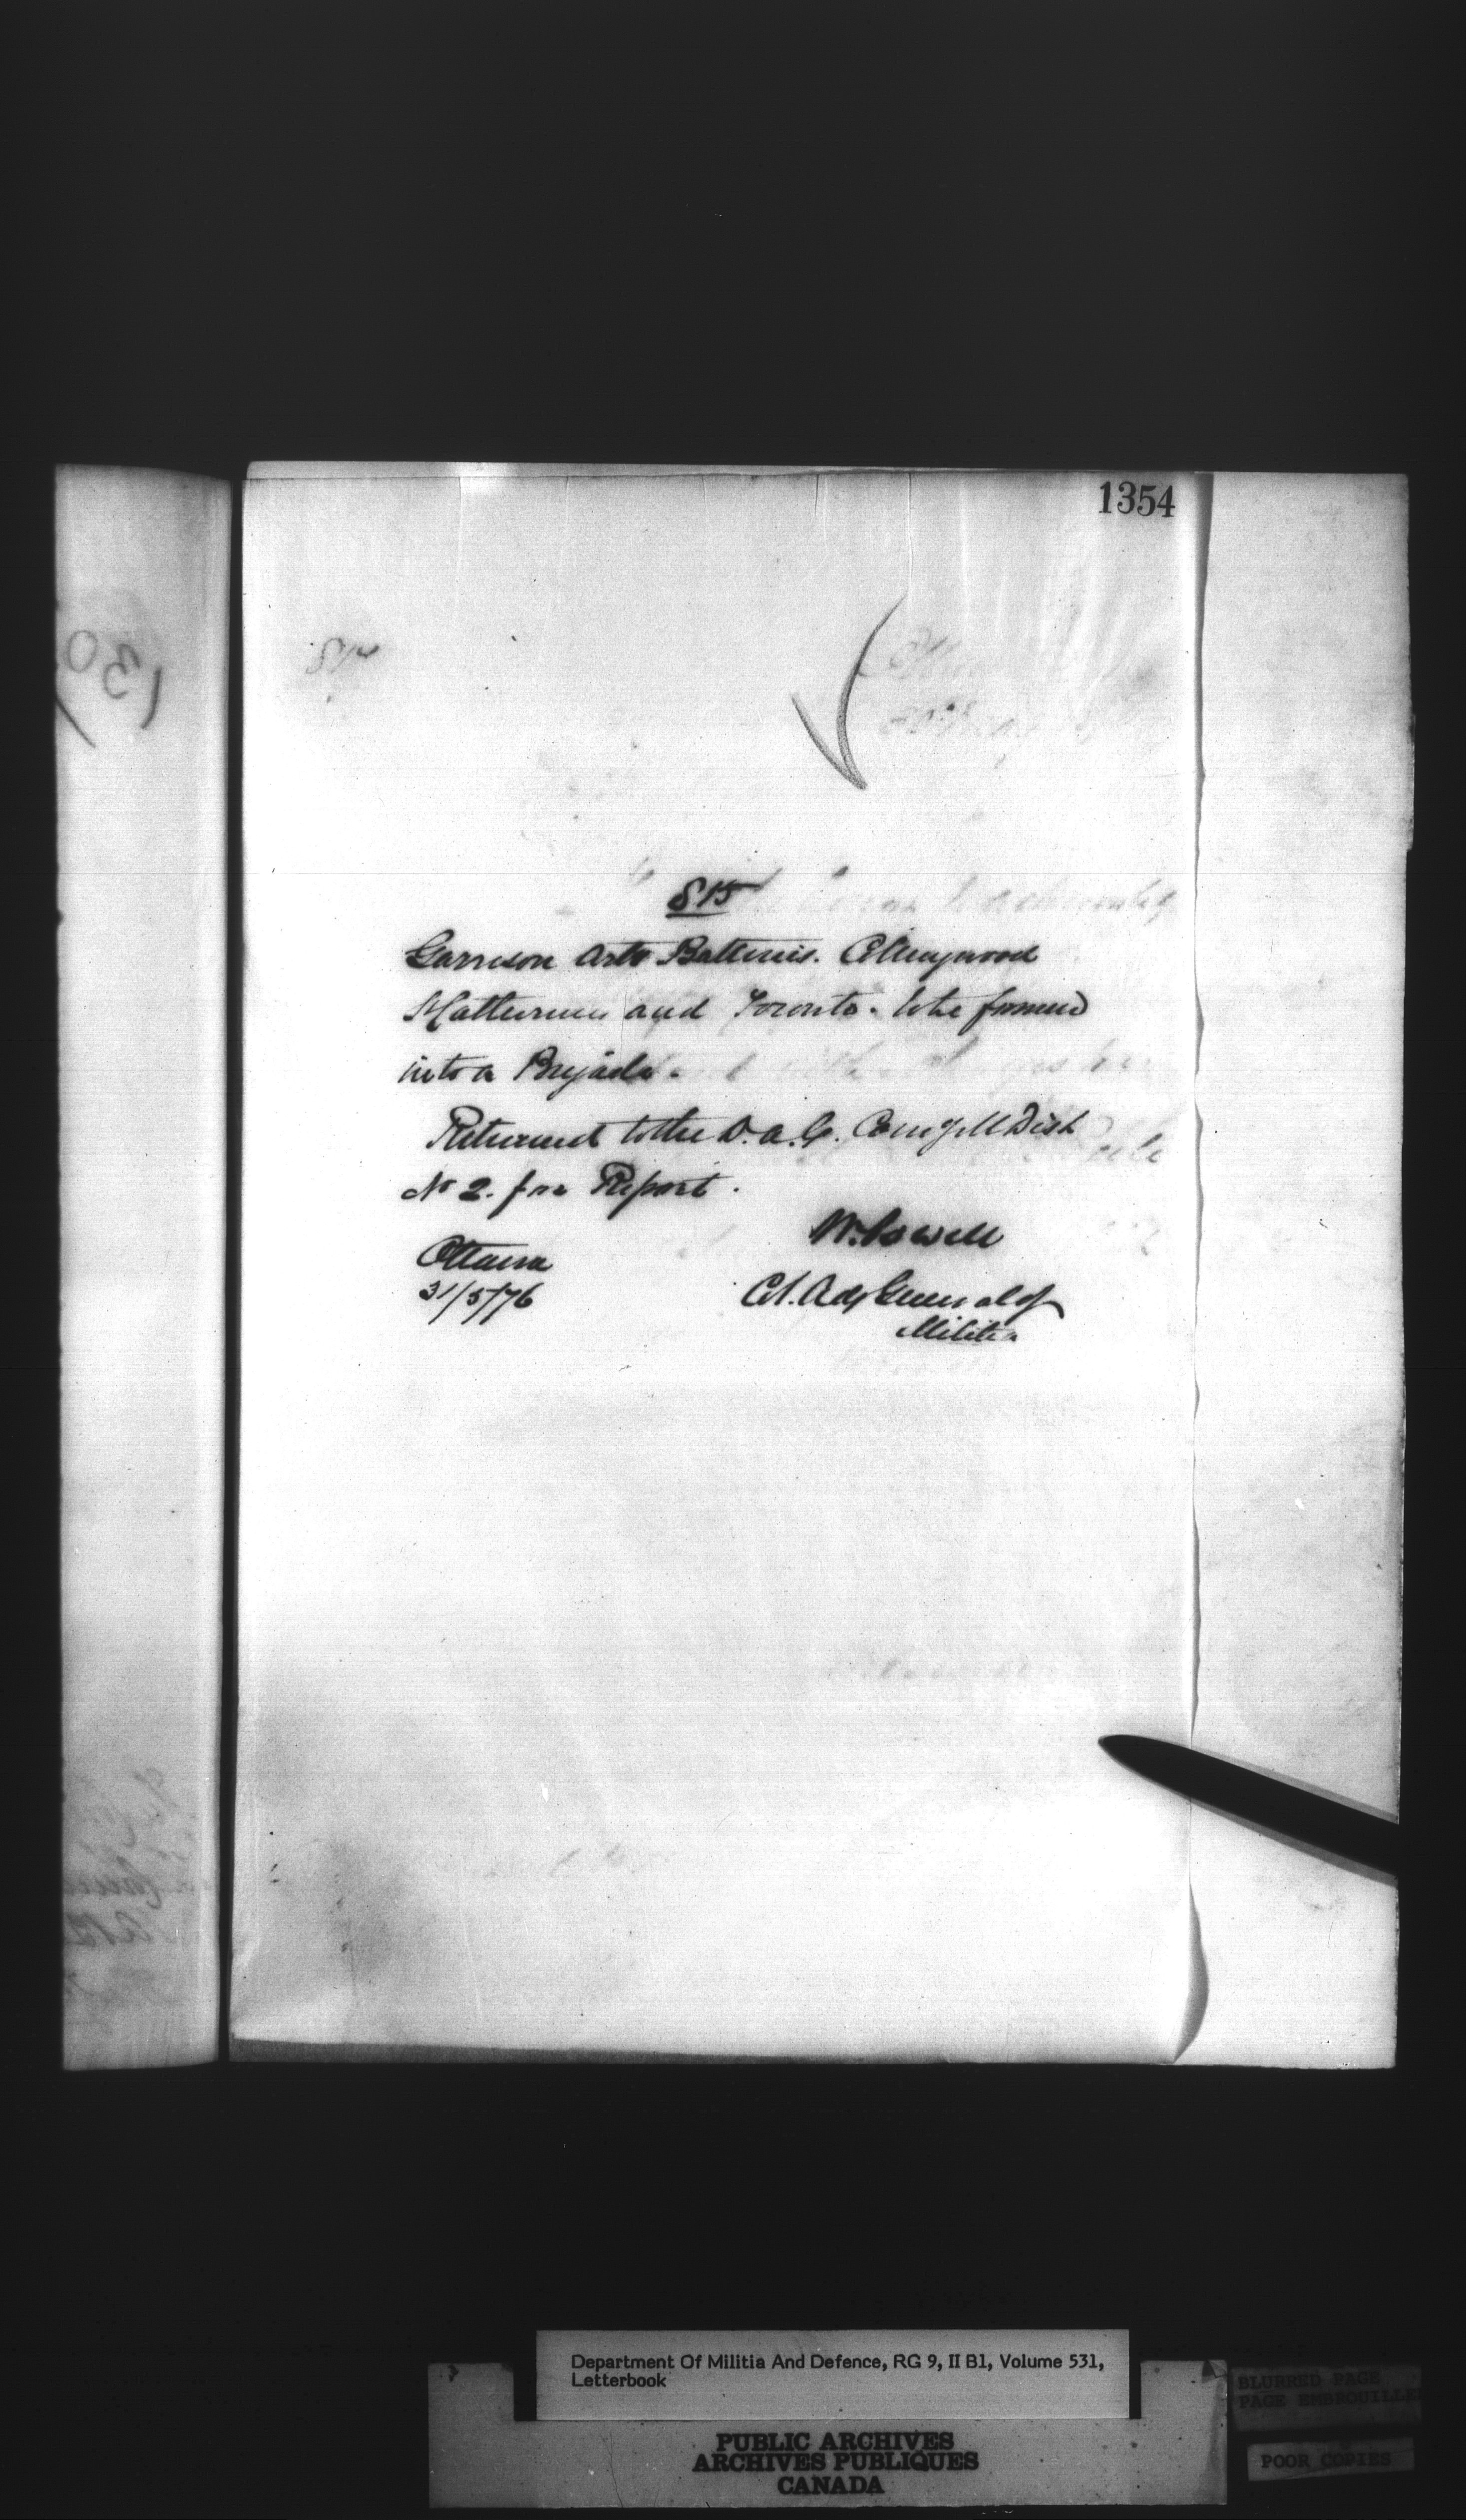 1354
815
Garrison Arty Batteries. Collingwood
St Catherines and Toronto. to be formed
into a Brigade.
Returned to the D.A.G. Comg M Dist
No 2. for Report.
W. Powell
Ottawa
Col. Adj General of
31/5/76
Militia
Department Of Militia And Defence, RG 9, II B1, Volume 531,
Letterbook
PUBLIC ARCHIVES
ARCHIVES PUBLIQUES
CANADA
BLURRED PAGE
PAGE EMBROUILLEE
POOR COPIES